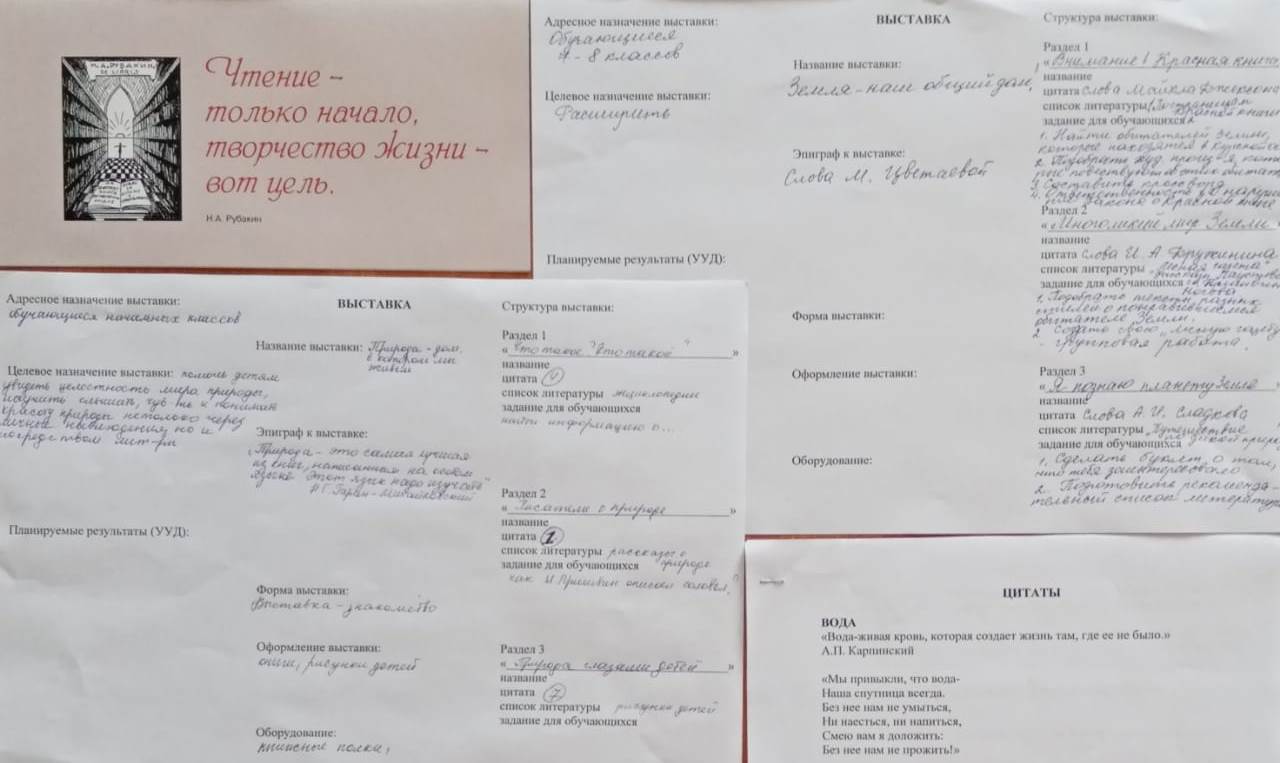 Н.А. РУБАКИН
EX LIBRIS
Чтение –
только начало,
творчество жизни –
вот цель.
Н.А. Рубакин
Адресное назначение выставки:
Обучающиеся
7-8 классов
Целевое назначение выставки:
Расширить
Планируемые результаты (УУД):
ВЫСТАВКА
Название выставки:
Земля-наш общий дом.
Эпиграф к выставке:
Слова М. Цветаевой
Форма выставки:
Оформление выставки:
Оборудование:
Структура выставки:
Раздел 1
«Внимание! Красная книга
название
цитата Слова Майкла
список литературы По страницам
Красной книги
задание для обучающихся
1. Найти обитателей Земли,
которые находятся в Курской
2. Подобрать худ. произв-я, кото
рые повествуют об этих обитат
3. Составить кроссворд
4. Ответственность за наруше
ние закона о Красной книге
Раздел 2
«Многоликий мир Земли
название
цитата Слова И. А. Дружинина
список литературы „Лесная газета"
задание для обучающихся
1. Подобрать тексты разных
о понравившемся
обитателе Земли.
2. Создать свою „Лесную газету
- групповая работа.
Раздел 3
«Я познаю планету Земля
название
цитата Слова А. И. Сладкова
список литературы „Путешествие
по дикой природе
задание для обучающихся
1. Сделать буклет о том,
что тебя заинтересовало
2. Подготовить рекоменда-
тельный список литературы
Адресное назначение выставки:
обучающиеся начальных классов
Целевое назначение выставки: помочь детям
увидеть целостность мира природы,
научить слышать, чув-ть и понимать
красоту природы не только через
личные наблюдения, но и
посредством лит-ры
Планируемые результаты (УУД):
ВЫСТАВКА
Название выставки: Природа - дом,
в котором мы
живём
Эпиграф к выставке:
„Природа - это самая лучшая
из книг, написанная на особом
языке. Этот язык надо изучать"
Н Г. Гарин-Михайловский
Форма выставки:
Выставка - знакомство
Оформление выставки:
книги, рисунки детей
Оборудование:
книжные полки,
Структура выставки:
Раздел 1
« "Что такое? Кто такой" »
название
цитата 4
список литературы энциклопедии
задание для обучающихся
найти информацию о...
Раздел 2
« Писатели о природе »
название
цитата 1
список литературы рассказы о
природе
задание для обучающихся
как М. Пришвин описал
Раздел 3
« Природа глазами детей »
название
цитата 7
список литературы рисунки детей
задание для обучающихся
ЦИТАТЫ
ВОДА
«Вода-живая кровь, которая создает жизнь там, где ее не было.»
А.П. Карпинский
«Мы привыкли, что вода-
Наша спутница всегда.
Без нее нам не умыться,
Ни наесться, ни напиться,
Смею вам я доложить:
Без нее нам не прожить!»